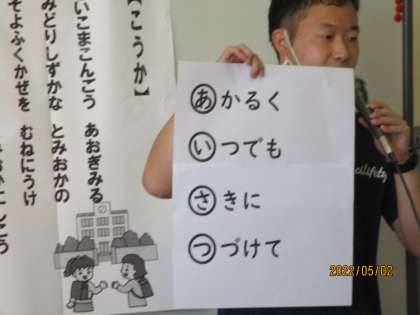 【こうか】
いこまこんごう あおぎみる
みどりしずかな とみおかの
そよふくかぜを むねにうけ
あかるく
いつでも
さきに
つづけて
2022/05/02